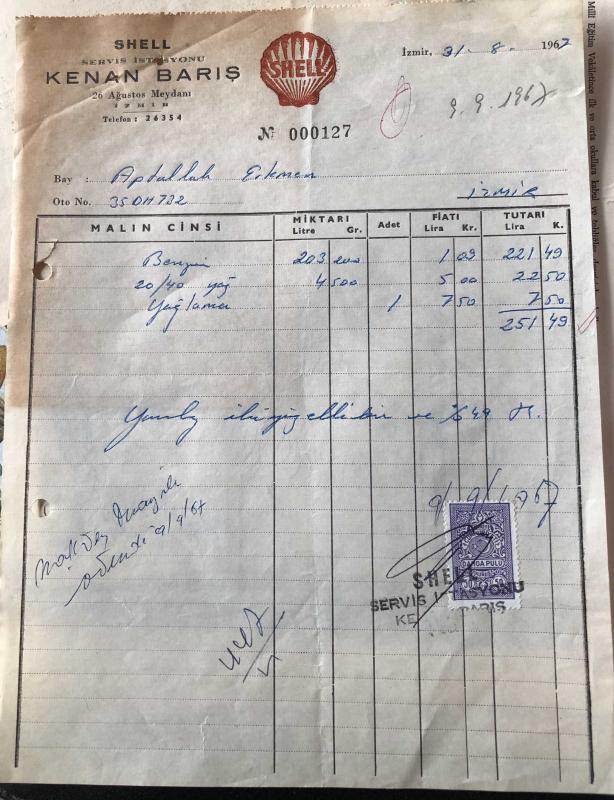 SHELL
SERVİS İSTASYONU
KENAN BARIŞ
26 Ağustos Meydanı
İZMİR
Telefon : 26354
SHELL
İzmir, 31 - 8 - 1967
9.9.1967
№ 000127
Bay : Aptullah Erkmen
Oto No. 35 DH 782 İzmir
MALIN CİNSİ MİKTARI Litre Gr. Adet FİATI Lira Kr. TUTARI Lira K.
Benzin 203 200 1 09 221 49
20/40 yağ 4 500 5 00 22 50
Yağlama 1 7 50 7 50
251 49
Yalnız ikiyüzellibir ve %49 TL.
9/9/1967
ödendi 9/9/67
DAMGA PULU
SHELL
SERVİS İSTASYONU
KENAN BARIŞ
Millî Eğitim Vekâletince ilk ve orta okullara kabul ve